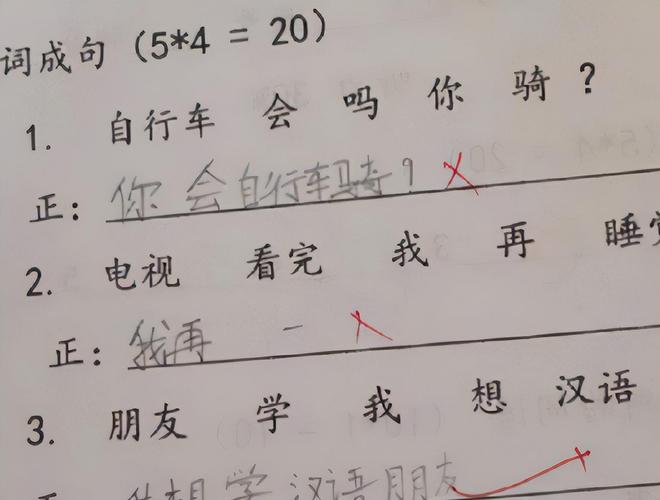 词成句 (5*4 = 20)
1. 自行车 会 吗 你 骑 ?
正: 你会自行车骑?
2. 电视 看完 我 再 睡
正: 我再 一
3. 朋友 学 我 想 汉语
想学汉语朋友